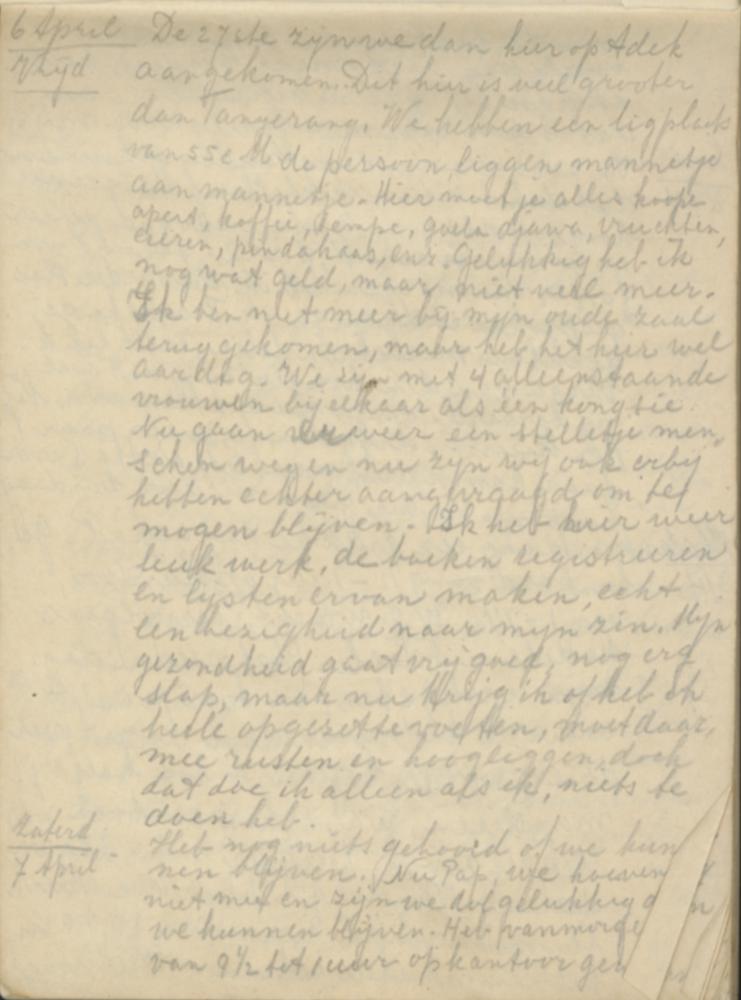 6 April De 27ste zijn we dan hier op Adek
Vrijd aangekomen. Dit hier is veel grooter
dan Tangerang. We hebben een ligplaats
van 55 c M de persoon liggen mannetje
aan mannetje. Hier moet je alles koope
apert, koffie, tempe, goela djawa, vruchten,
eieren, pindakaas, enz. Gelukkig heb ik
nog wat geld, maar niet veel meer.
Ik ben niet meer bij mijn oude zaal
teruggekomen, maar heb het hier wel
aardig. We zijn met 4 alleenstaande
vrouwen bij elkaar als één kongsie.
Nu gaan er weer een stelletje men,
schen weg en nu zijn wij ook erbij
hebben echter aangevraagd om te
mogen blijven. Ik heb hier weer
leuk werk, de boeken registreeren
en lijsten ervan maken, echt
een bezigheid naar mijn zin. Mijn
gezondheid gaat vrij goed, nog erg
slap, maar nu krijg ik of heb ik
heele opgezette voeten, moet daar,
mee rusten en hoogliggen, doch
dat doe ik alleen als ik, niets te
doen heb.
Zaterd Heb nog niets gehoord of we kun
7 April nen blijven. Nu Pap, we hoeven
niet mee en zijn we dolgelukkig d
we kunnen blijven. Heb vanmorge
van 9½ tot 1 uur op kantoor ge